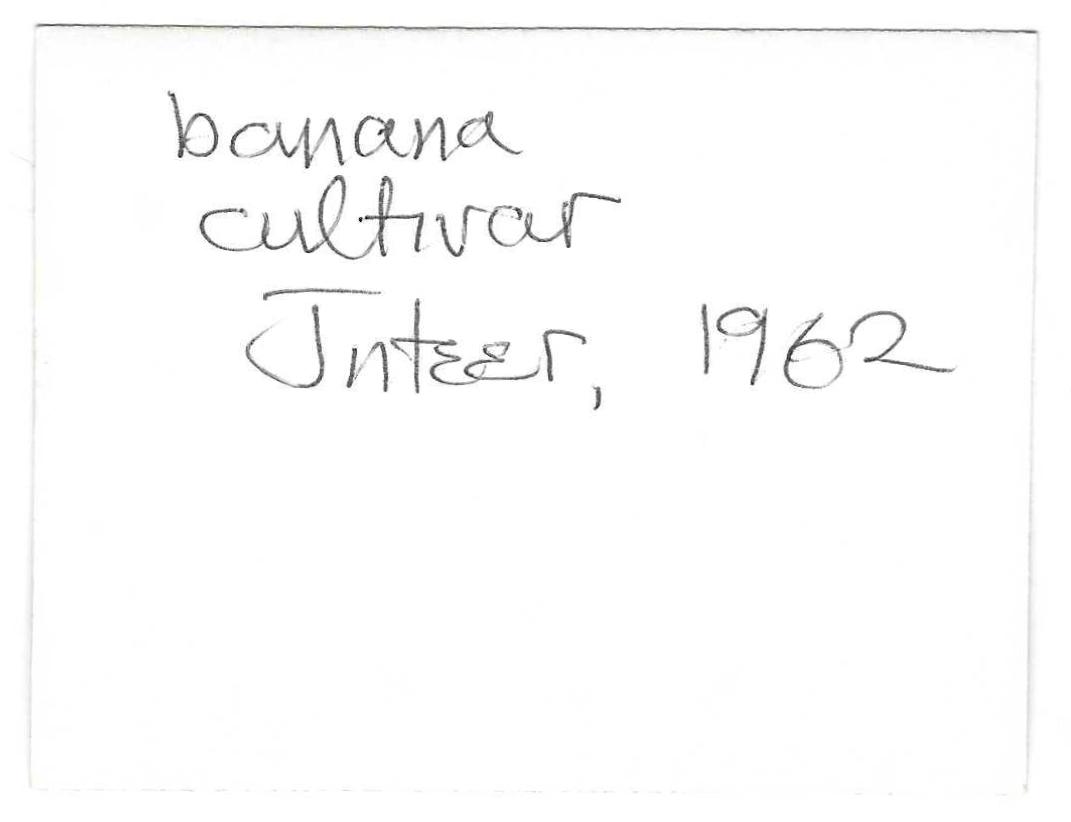 banana
cultivar
Inteer, 1962